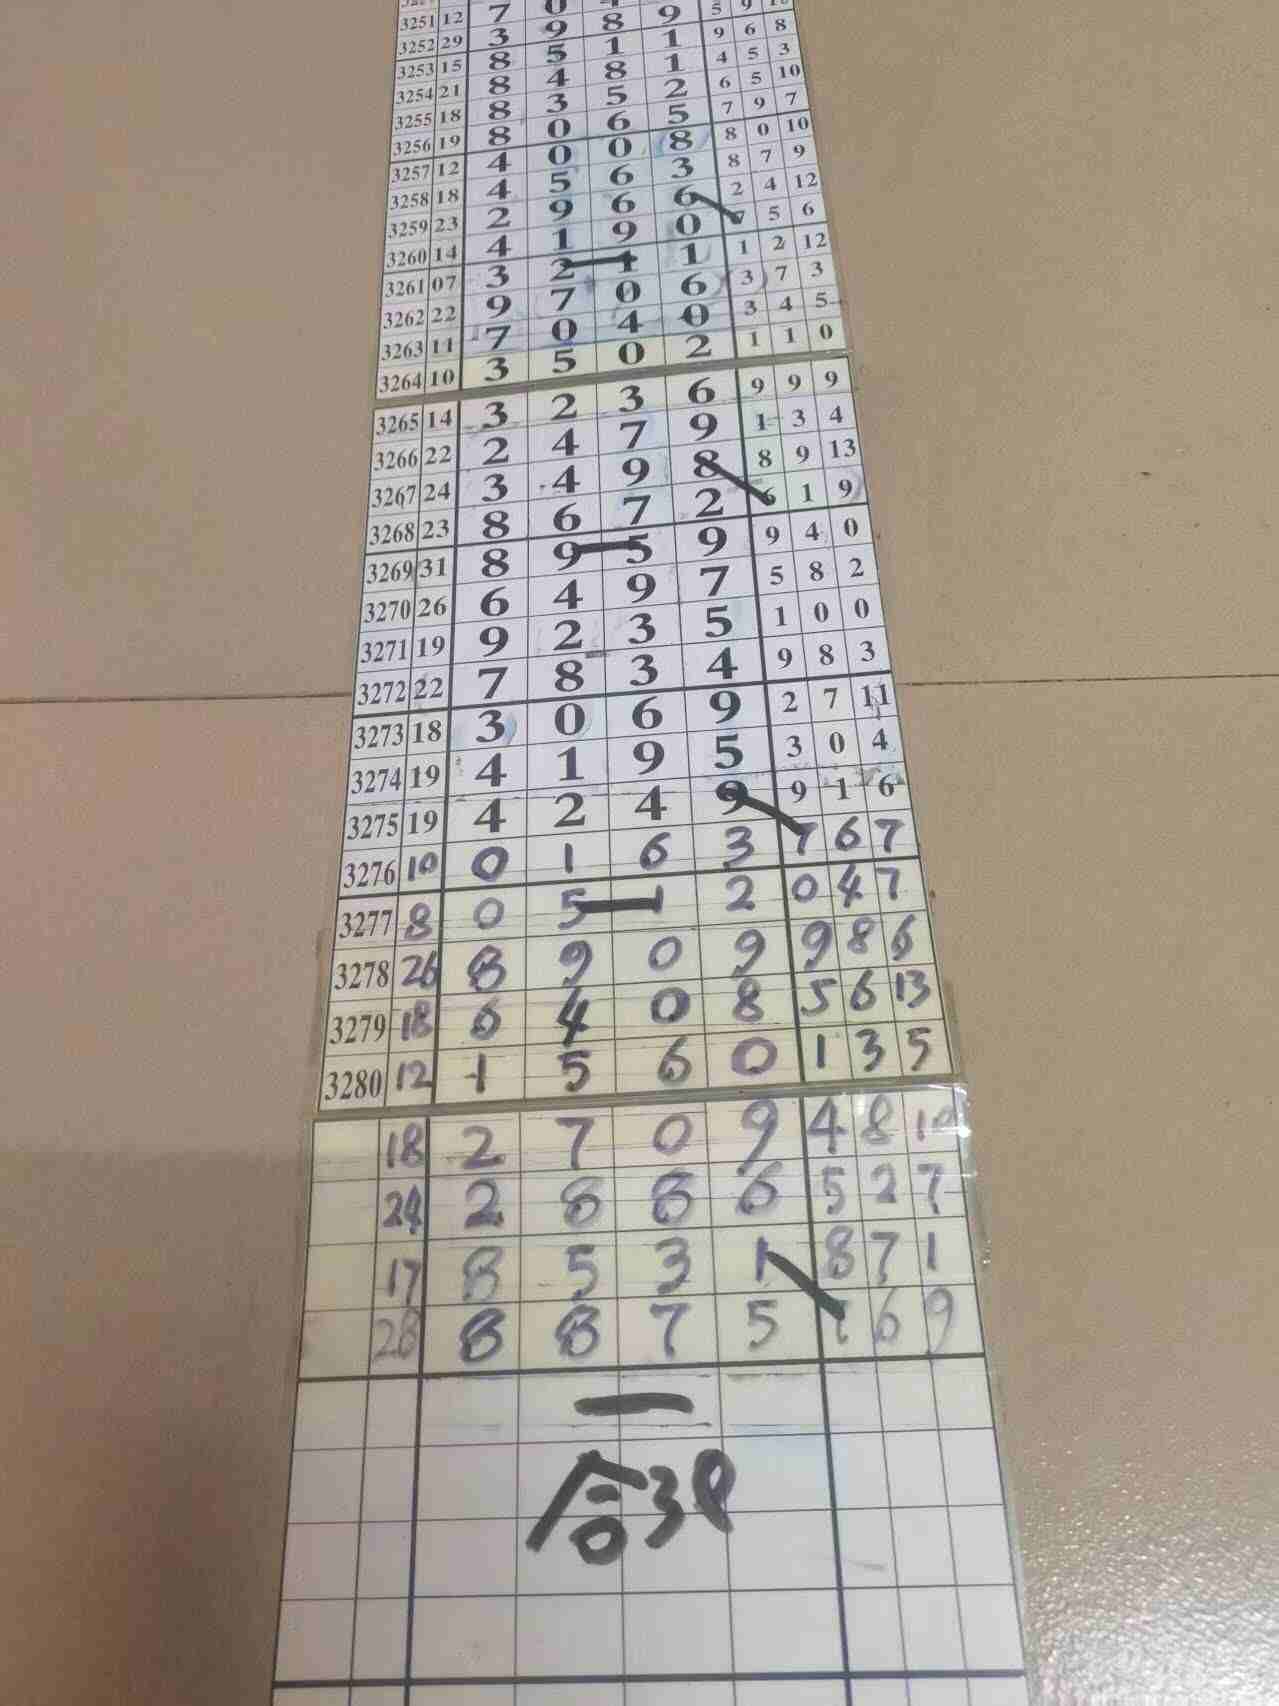 3251 12 7 0 9 5 9
3252 29 3 9 8 9 9 6 8
3253 15 8 5 1 1 4 5 3
3254 21 8 4 8 1 6 5 10
3255 18 8 3 5 2 7 9 7
3256 19 8 0 6 5 8 0 10
3257 12 4 0 0 8 8 7 9
3258 18 4 5 6 3 2 4 12
3259 23 2 9 6 6 7 5 6
3260 14 4 1 9 0 1 2 12
3261 07 3 2 1 1 3 7 3
3262 22 9 7 0 6 3 4 5
3263 11 7 0 4 0 1 1 0
3264 10 3 5 0 2
3265 14 3 2 3 6 9 9 9
3266 22 2 4 7 9 1 3 4
3267 24 3 4 9 8 8 9 13
3268 23 8 6 7 2 6 1 9
3269 31 8 9 5 9 9 4 0
3270 26 6 4 9 7 5 8 2
3271 19 9 2 3 5 1 0 0
3272 22 7 8 3 4 9 8 3
3273 18 3 0 6 9 2 7 11
3274 19 4 1 9 5 3 0 4
3275 19 4 2 4 9 9 1 6
3276 10 0 1 6 3 7 6 7
3277 8 0 5 1 2 0 4 7
3278 26 8 9 0 9 9 8 6
3279 18 6 4 0 8 5 6 13
3280 12 1 5 6 0 1 3 5
18 2 7 0 9 4 8 10
24 2 8 8 6 5 2 7
17 8 5 3 1 8 7 1
28 8 8 7 5 7 6 9
合38